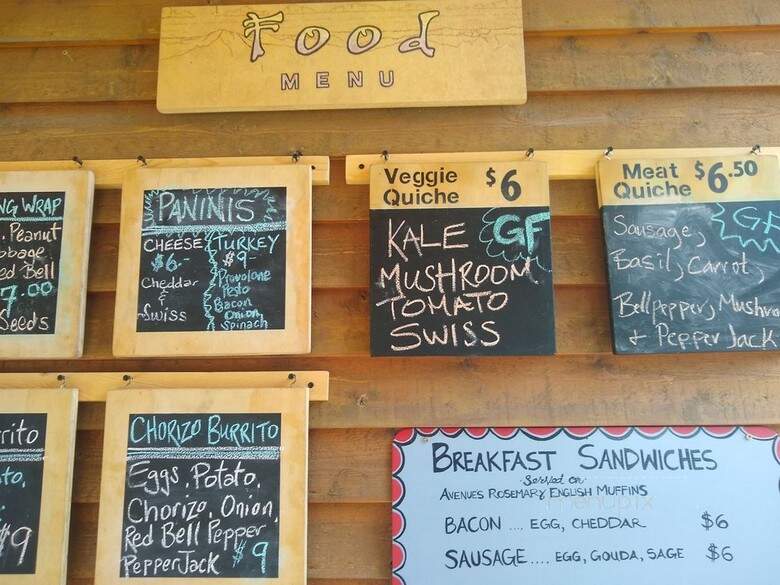 Food
MENU
NG WRAP
Peanut
bbage
ed Bell
7.00
Seeds
PANINIS
CHEESE
$6.-
Cheddar
&
Swiss
TURKEY
$9-
Provolone
Pesto
Bacon
Onion,
Spinach
Veggie
Quiche
$6
KALE GF
MUSHROOM
TOMATO
SWISS
Meat
Quiche
$6.50
Sausage,
Basil, Carrot,
Bellpepper, Mushro
+ Pepper Jack
rrito
to,
$9
CHORIZO BURRITO
Eggs, Potato,
Chorizo, Onion,
Red Bell Pepper
PepperJack $9
BREAKFAST SANDWICHES
Served on
AVENUES ROSEMARY ENGLISH MUFFINS
BACON ... EGG, CHEDDAR $6
SAUSAGE.... EGG, GOUDA, SAGE $6